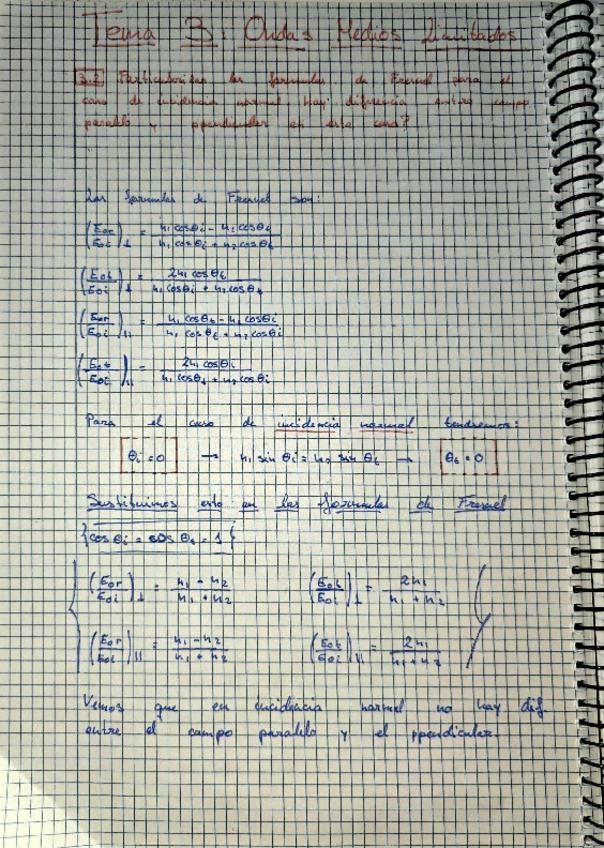 Tema 3: Ondas Medios Limitados
3.2 Particularizar las fórmulas de Fresnel para el
caso de incidencia normal. Hay diferencia entre campo
paralelo y ppendicular en este caso?
Las fórmulas de Fresnel son:
(E₀r/E₀i)⊥ = (n₁cosθi - n₂cosθt)/(n₁cosθi + n₂cosθt)
(E₀t/E₀i)⊥ = (2n₁cosθi)/(n₁cosθi + n₂cosθt)
(E₀r/E₀i)∥ = (n₁cosθt - n₂cosθi)/(n₁cosθt + n₂cosθi)
(E₀t/E₀i)∥ = (2n₁cosθi)/(n₁cosθt + n₂cosθi)
Para el caso de incidencia normal tendremos:
θi = 0 → n₁ sin θi = n₂ sin θt → θt = 0
Sustituimos esto en las fórmulas de Fresnel
{cos θi = cos θt = 1}
(E₀r/E₀i)⊥ = (n₁ - n₂)/(n₁ + n₂) (E₀t/E₀i)⊥ = 2n₁/(n₁ + n₂)
(E₀r/E₀i)∥ = (n₁ - n₂)/(n₁ + n₂) (E₀t/E₀i)∥ = 2n₁/(n₁ + n₂)
Vemos que en incidencia normal no hay dif.
entre el campo paralelo y el ppendicular.